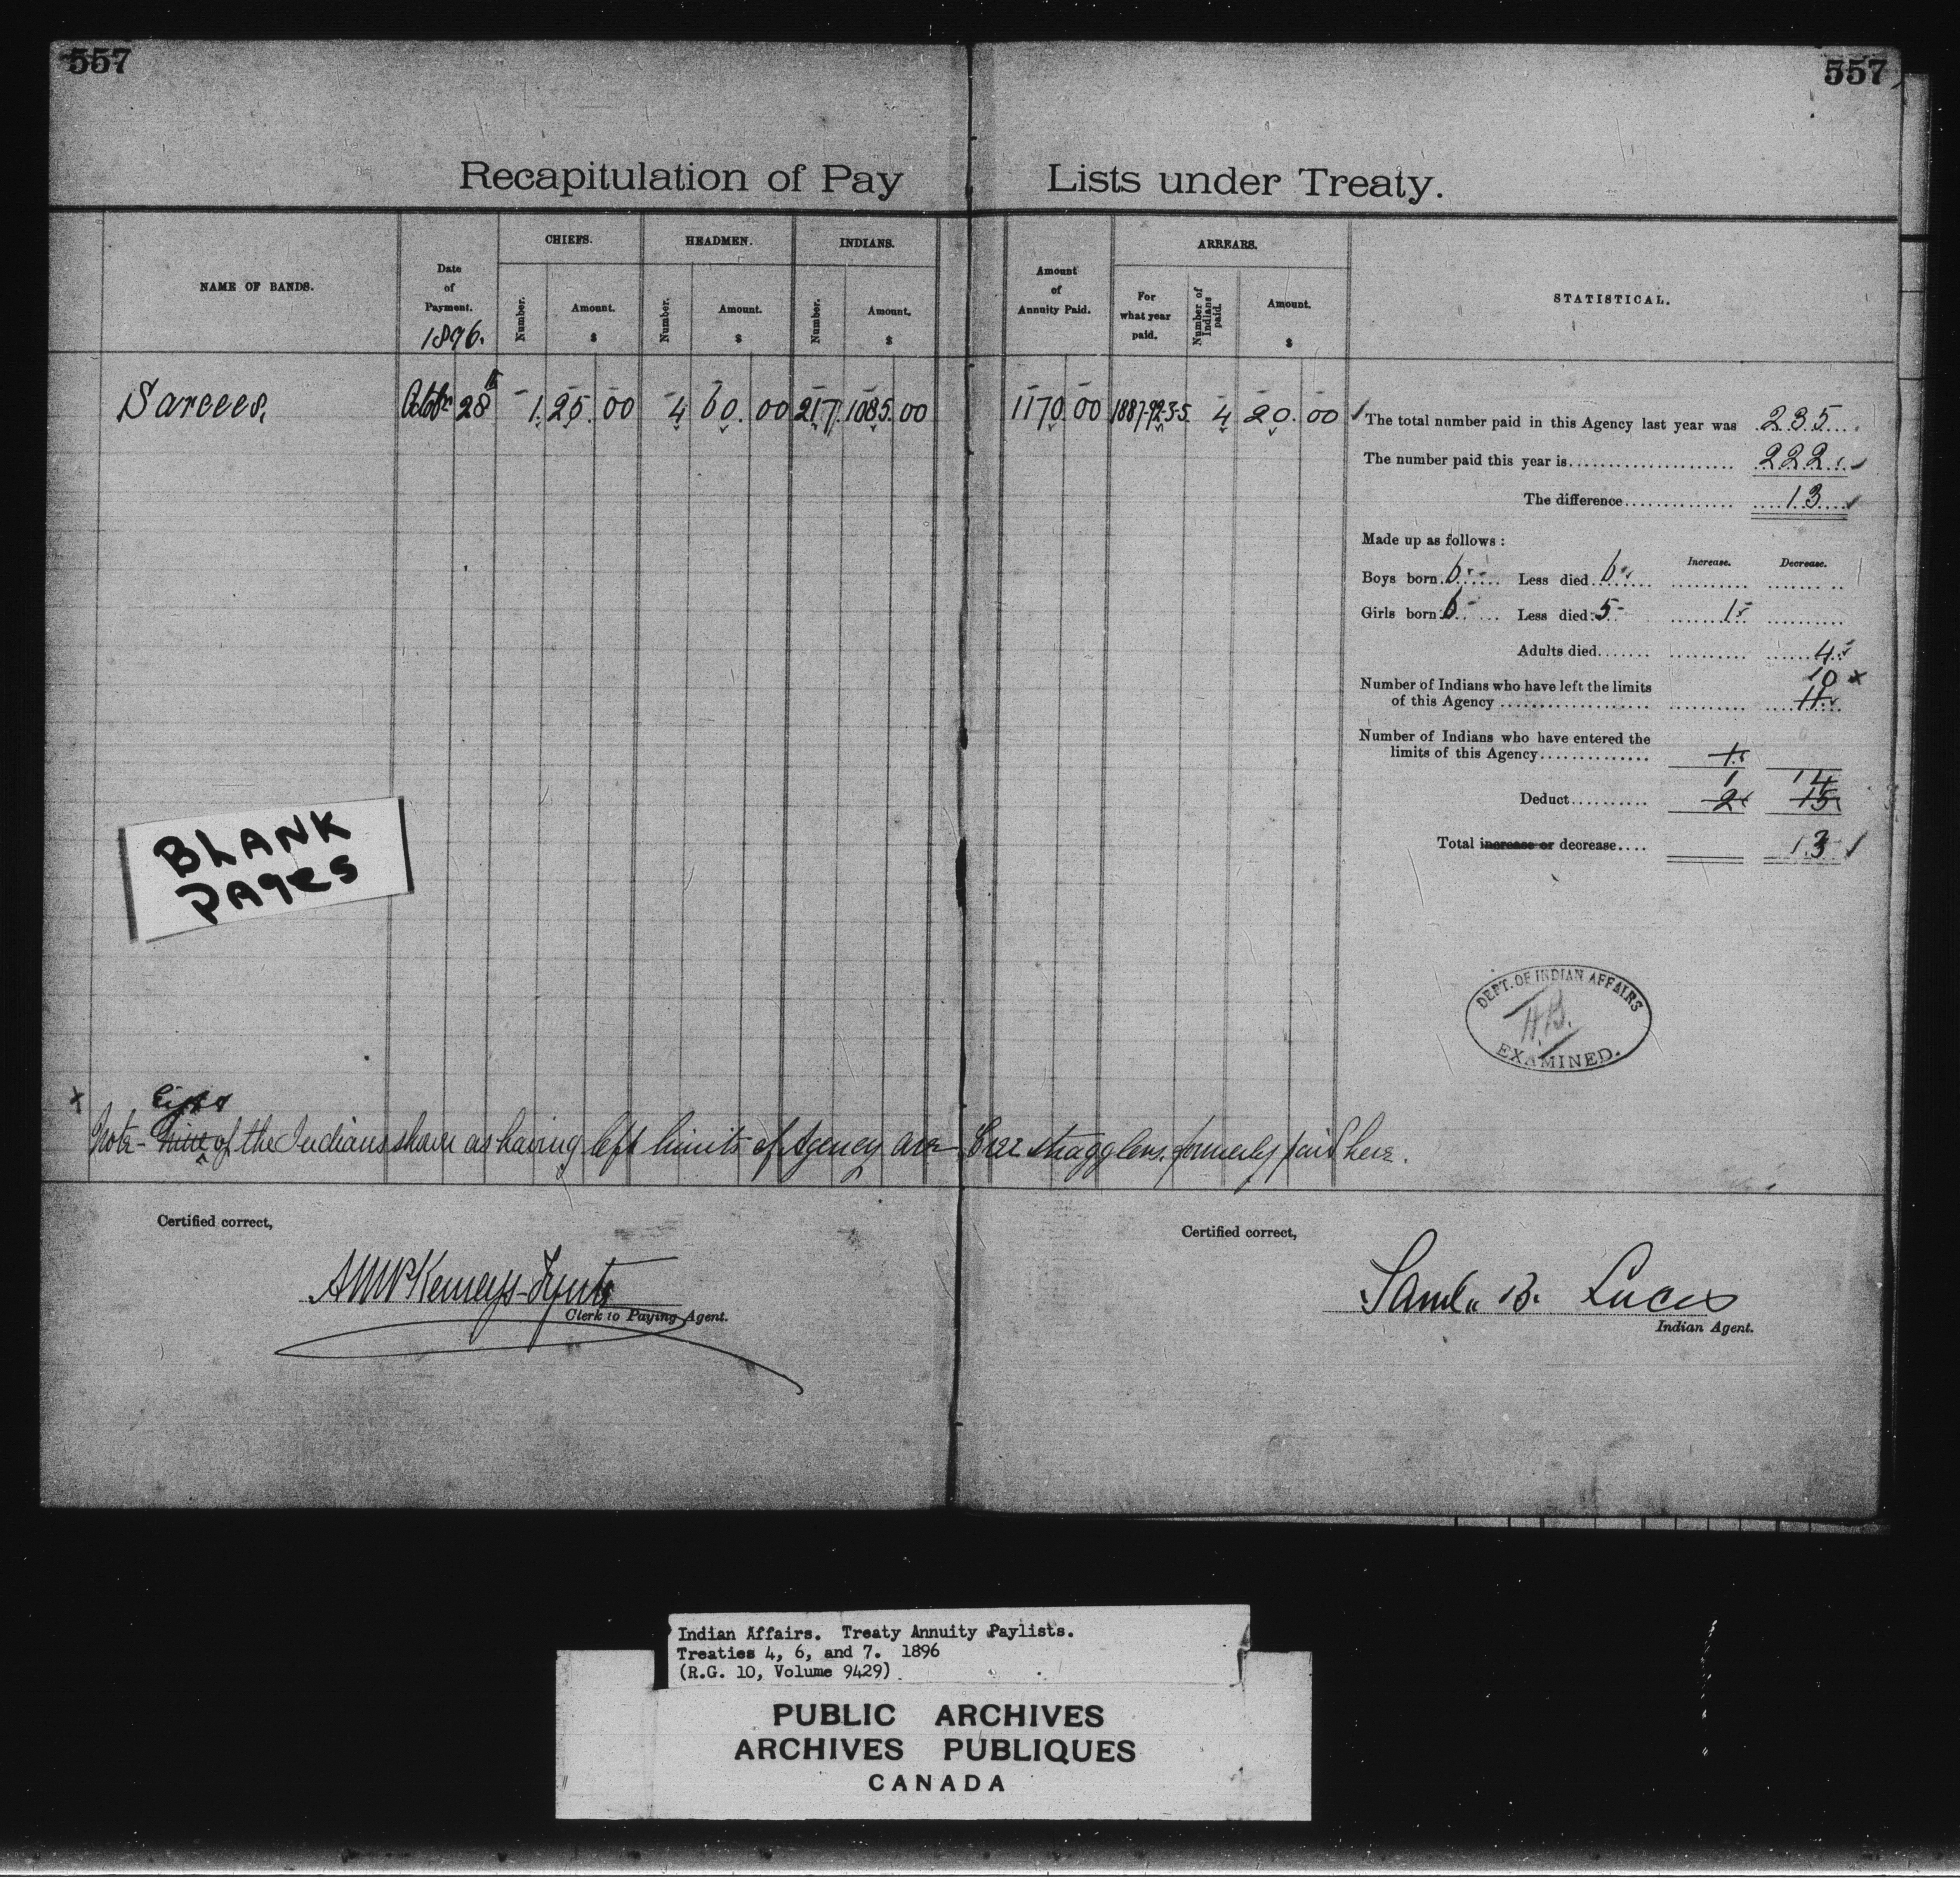 557
557
Recapitulation of Pay Lists under Treaty.
NAME OF BANDS.
Date of Payment.
1896.
CHIEFS.
Number.
Amount.
$
HEADMEN.
Number.
Amount.
$
INDIANS.
Number.
Amount.
$
Amount of Annuity Paid.
ARREARS.
For what year paid.
Number of Indians paid.
Amount.
$
STATISTICAL.
Sarcees. Octobr 28th 1. 25. 00 4 60. 00 217. 1085. 00 1170 00 1887-92-3-5. 4 20. 00
The total number paid in this Agency last year was 235
The number paid this year is 222
The difference 13
Made up as follows :
Increase. Decrease.
Boys born 6 Less died 6
Girls born 6 Less died 5 1
Adults died 4
10 x
Number of Indians who have left the limits
of this Agency 11
Number of Indians who have entered the
limits of this Agency 1
1 14
Deduct 2 15
Total increase or decrease 13
BLANK
PAGES
DEPT. OF INDIAN AFFAIRS
H.B.
EXAMINED.
x Eight
Note - Nine of the Indians shown as having left limits of Agency are Cree stragglers, formerly paid here.
Certified correct,
Clerk to Paying Agent.
Certified correct,
Saml. B. Lucas
Indian Agent.
Indian Affairs. Treaty Annuity Paylists.
Treaties 4, 6, and 7. 1896
(R.G. 10, Volume 9429)
PUBLIC ARCHIVES
ARCHIVES PUBLIQUES
CANADA